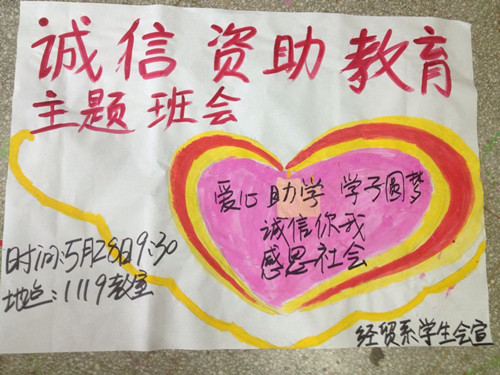 诚信 资助 教育
主题 班会
爱心 助学 学子圆梦
诚信你我
感恩社会
时间:5月28日9:30
地点:1119教室
经贸系学生会宣